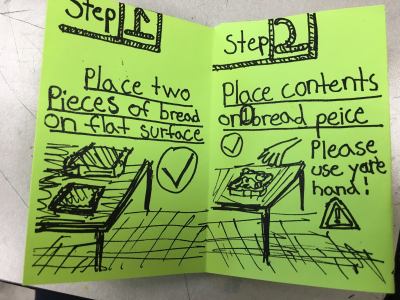 Step 1
Place two
Pieces of bread
on flat surface
Step 2
Place contents
on 1 bread peice
Please
use yore
hand!